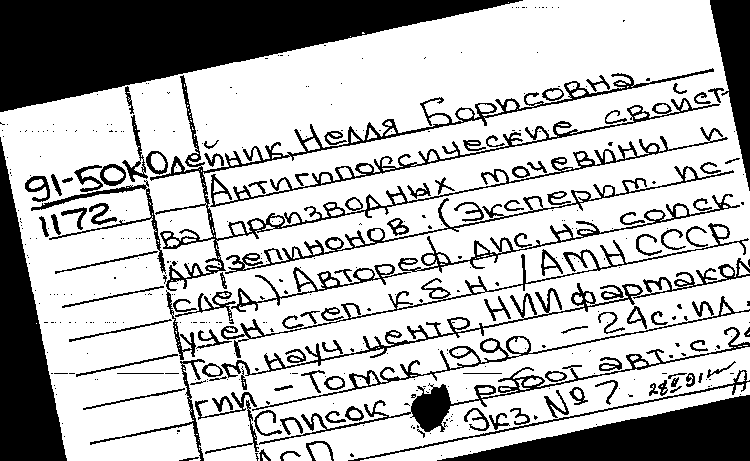 Олейник, Нелля Борисовна.
91-50К
1172
Антигипоксические свойст-
ва производных мочевины и
диазепинонов : (Эксперим. ис-
след.) : Автореф. дис. на соиск.
учен. степ. к.б.н. / АМН СССР,
Том. науч. центр, НИИ фармакол
гии. – Томск, 1990. – 24 с. : ил.
Список работ авт.: с. 2
Экз. № 7.